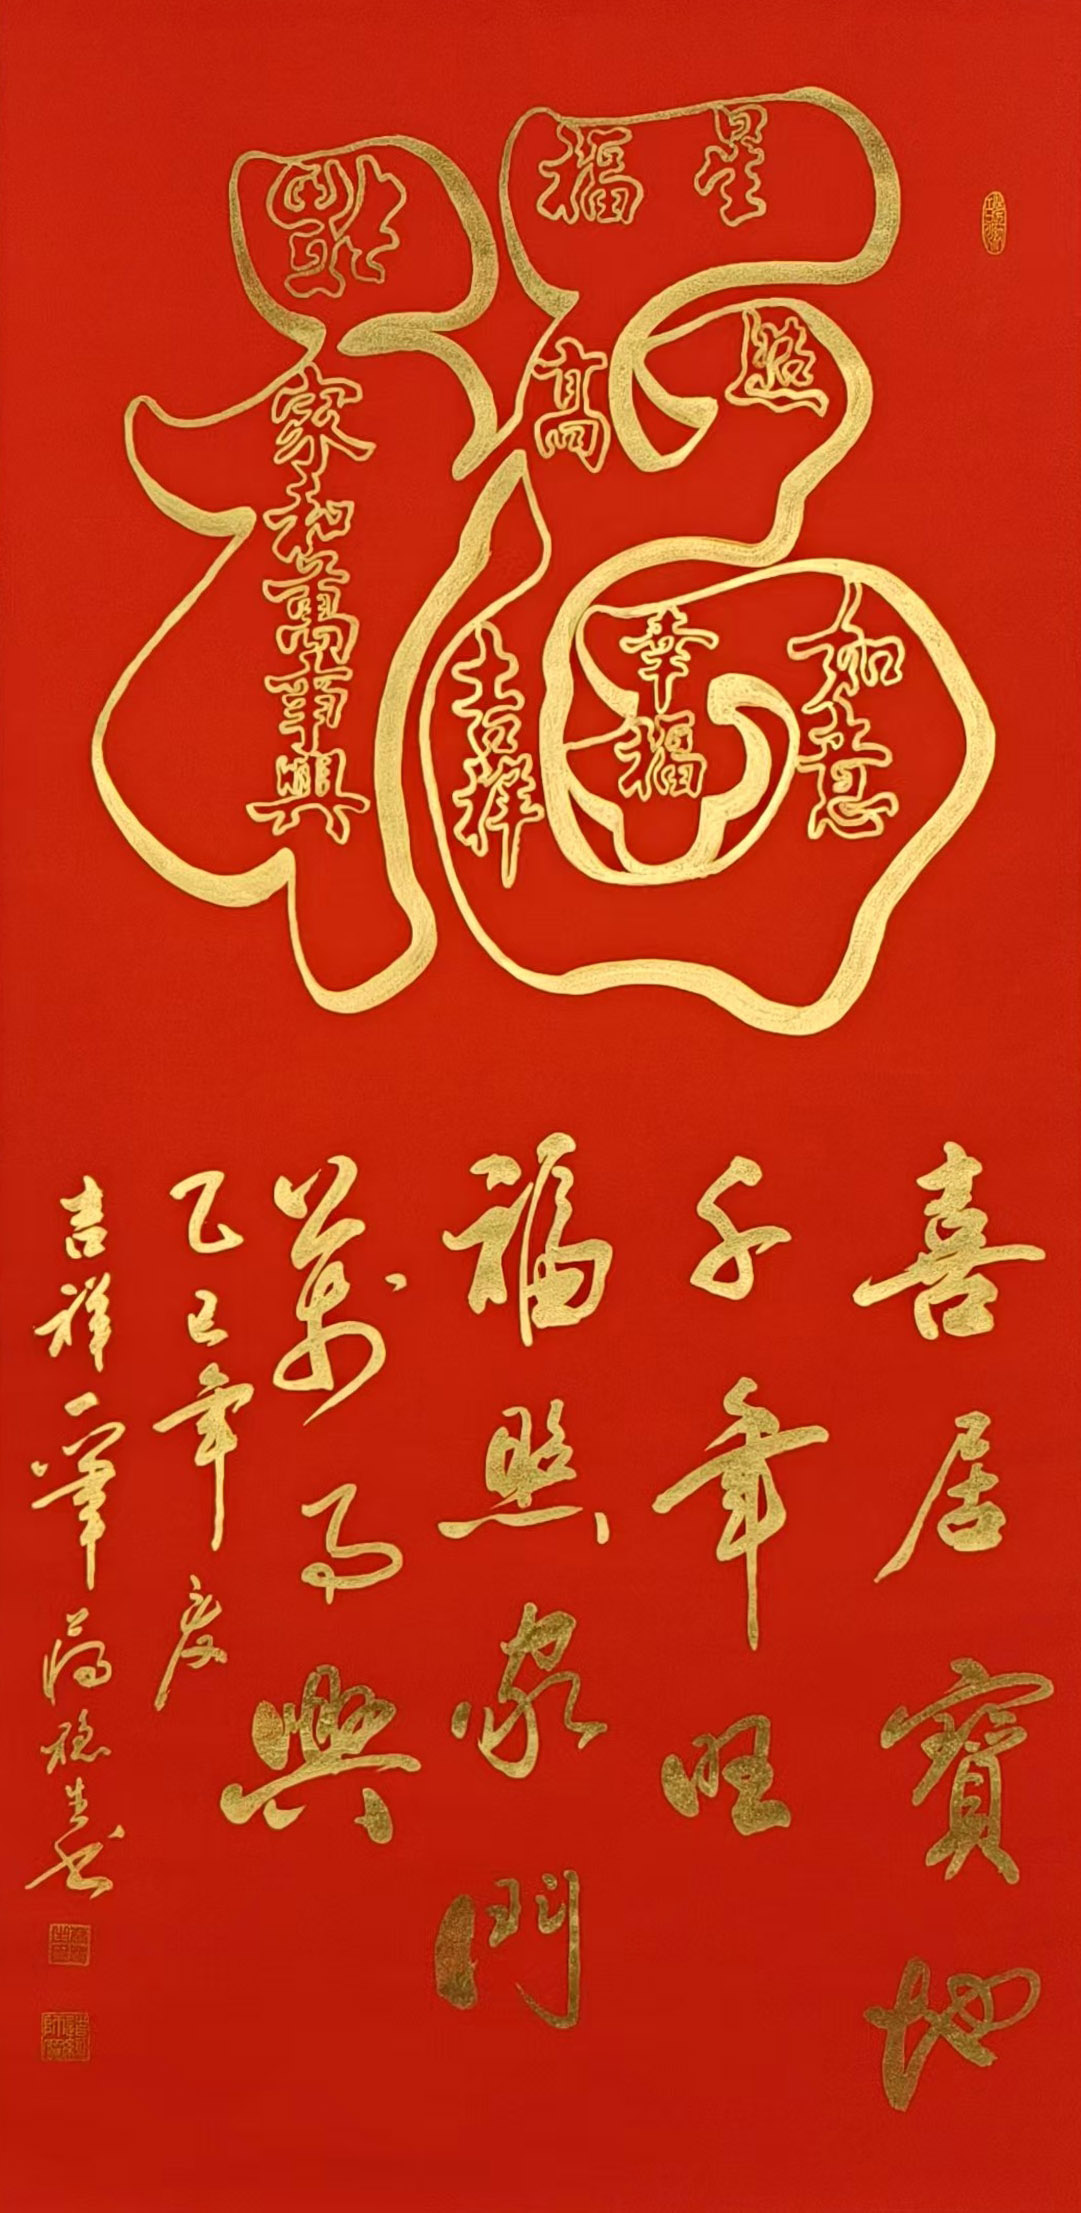 福
福星高照
家和萬事興
吉祥如意
幸福
喜居寶地
千年旺
福照家門
萬事興
乙巳年
吉祥一筆